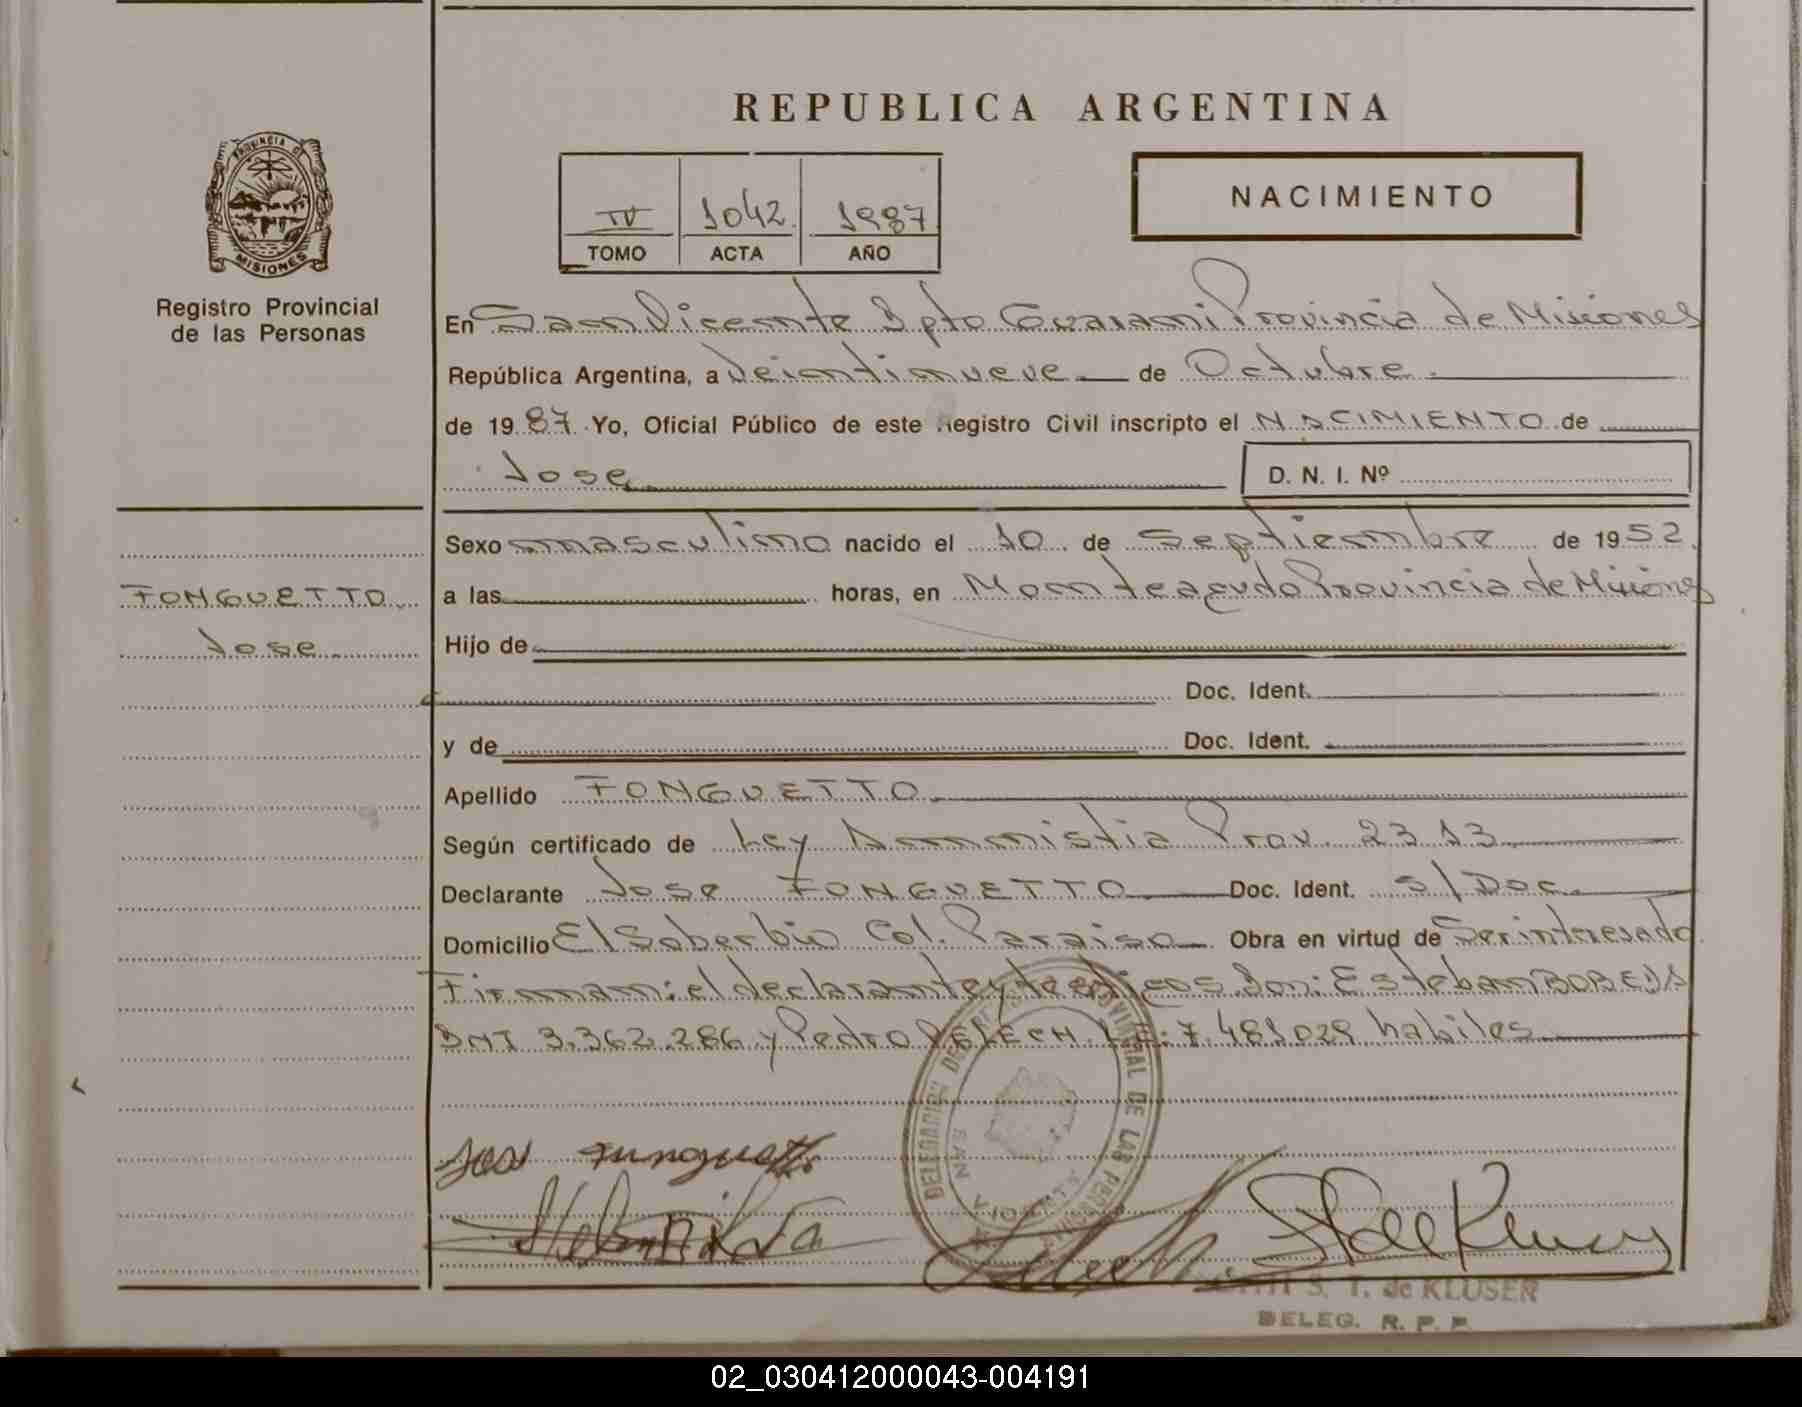 REPUBLICA ARGENTINA
PROVINCIA DE
MISIONES
Registro Provincial
de las Personas
IV 1042 1987
TOMO ACTA AÑO
NACIMIENTO
En San Vicente Dpto Guarani Provincia de Misiones
República Argentina, a Veintinueve de Octubre
de 1987 Yo, Oficial Público de este Registro Civil inscripto el NACIMIENTO de
Jose
D. N. I. Nº
FONGUETTO
Jose
Sexo masculino nacido el 10 de Septiembre de 1952
a las horas, en Monteagudo Provincia de Misiones
Hijo de
Doc. Ident.
y de Doc. Ident.
Apellido FONGUETTO
Según certificado de Ley Amnistia Prov. 2313
Declarante Jose FONGUETTO Doc. Ident. S/Doc.
Domicilio El Soberbio Col. Paraiso Obra en virtud de Ser interesado
Firman: el declarante y testigos Don: Esteban BOBEDA
DNI 3.362.286 y Pedro PELECH L.E: 7.481029 habiles
DELEGACION DEL REGISTRO PROVINCIAL DE LAS PERSONAS
SAN VICENTE
S. T. de KLUSER
DELEG. R. P. P.
02_030412000043-004191